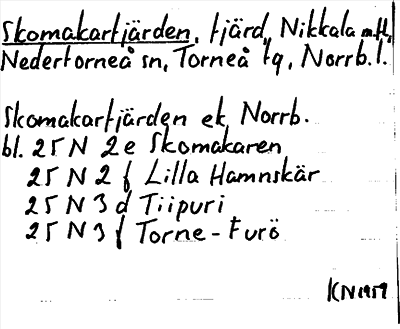 Skomakarfjärden, fjärd, Nikkala m.fl.,
Nedertorneå sn, Torneå tg, Norrb. l.
Skomakarfjärden ek, Norrb.
bl. 25 N 2 e Skomakaren
25 N 2 f Lilla Hamnskär
25 N 3 d Tiipuri
25 N 3 f Torne-Furö
KN 1959